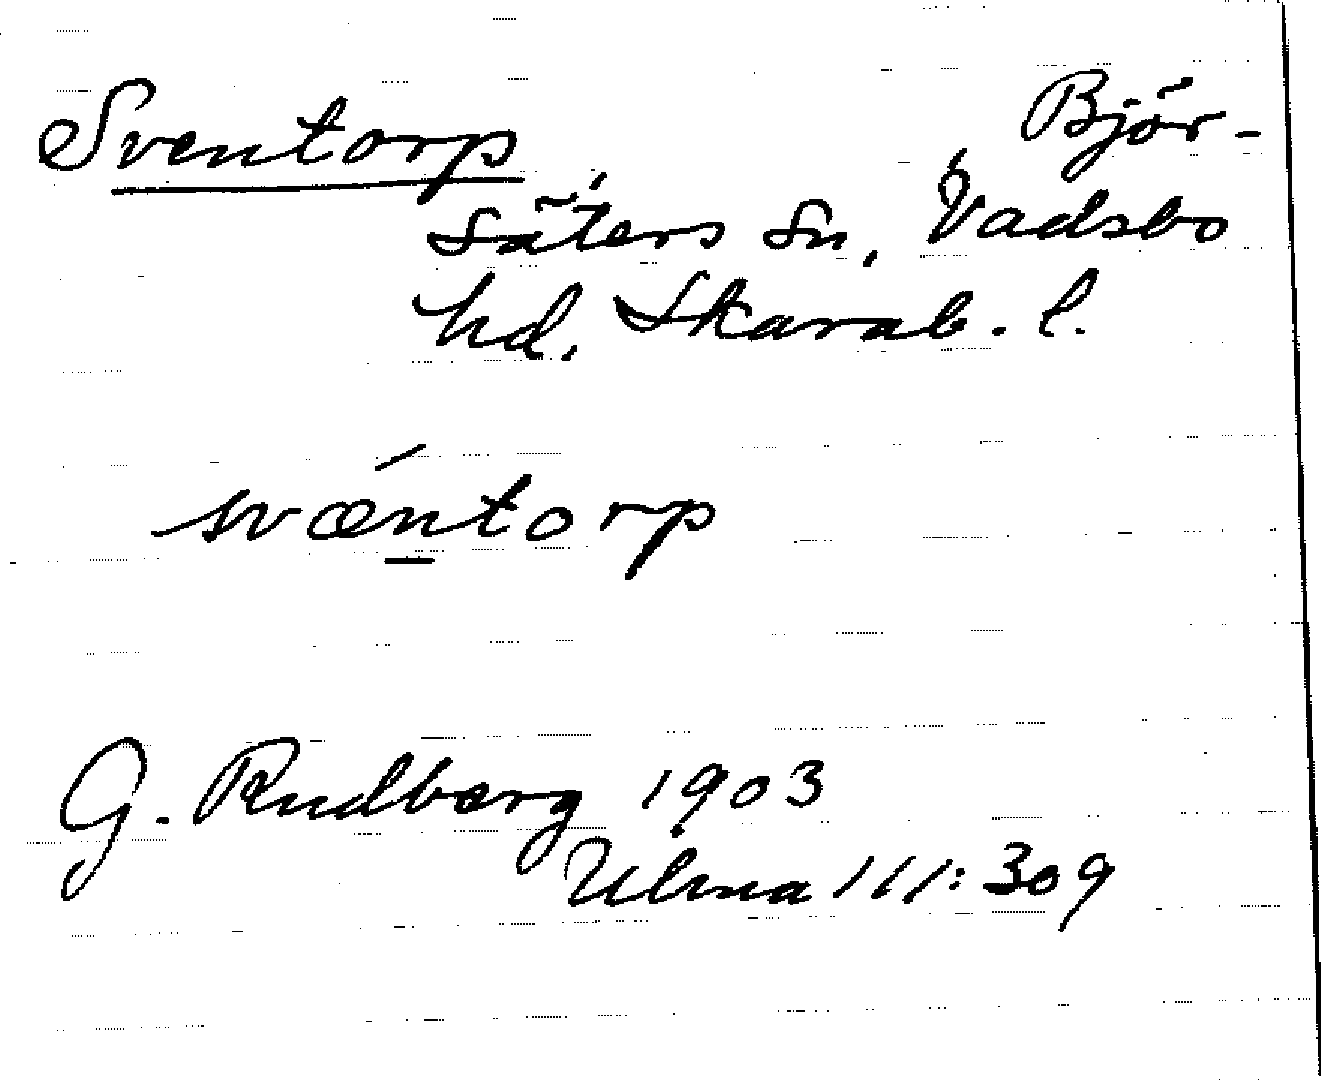 Sventorp Björ-
säters sn, Vadsbo
hd. Skarab. l.
svæntorp
G. Rudberg 1903
Ulma 111:309